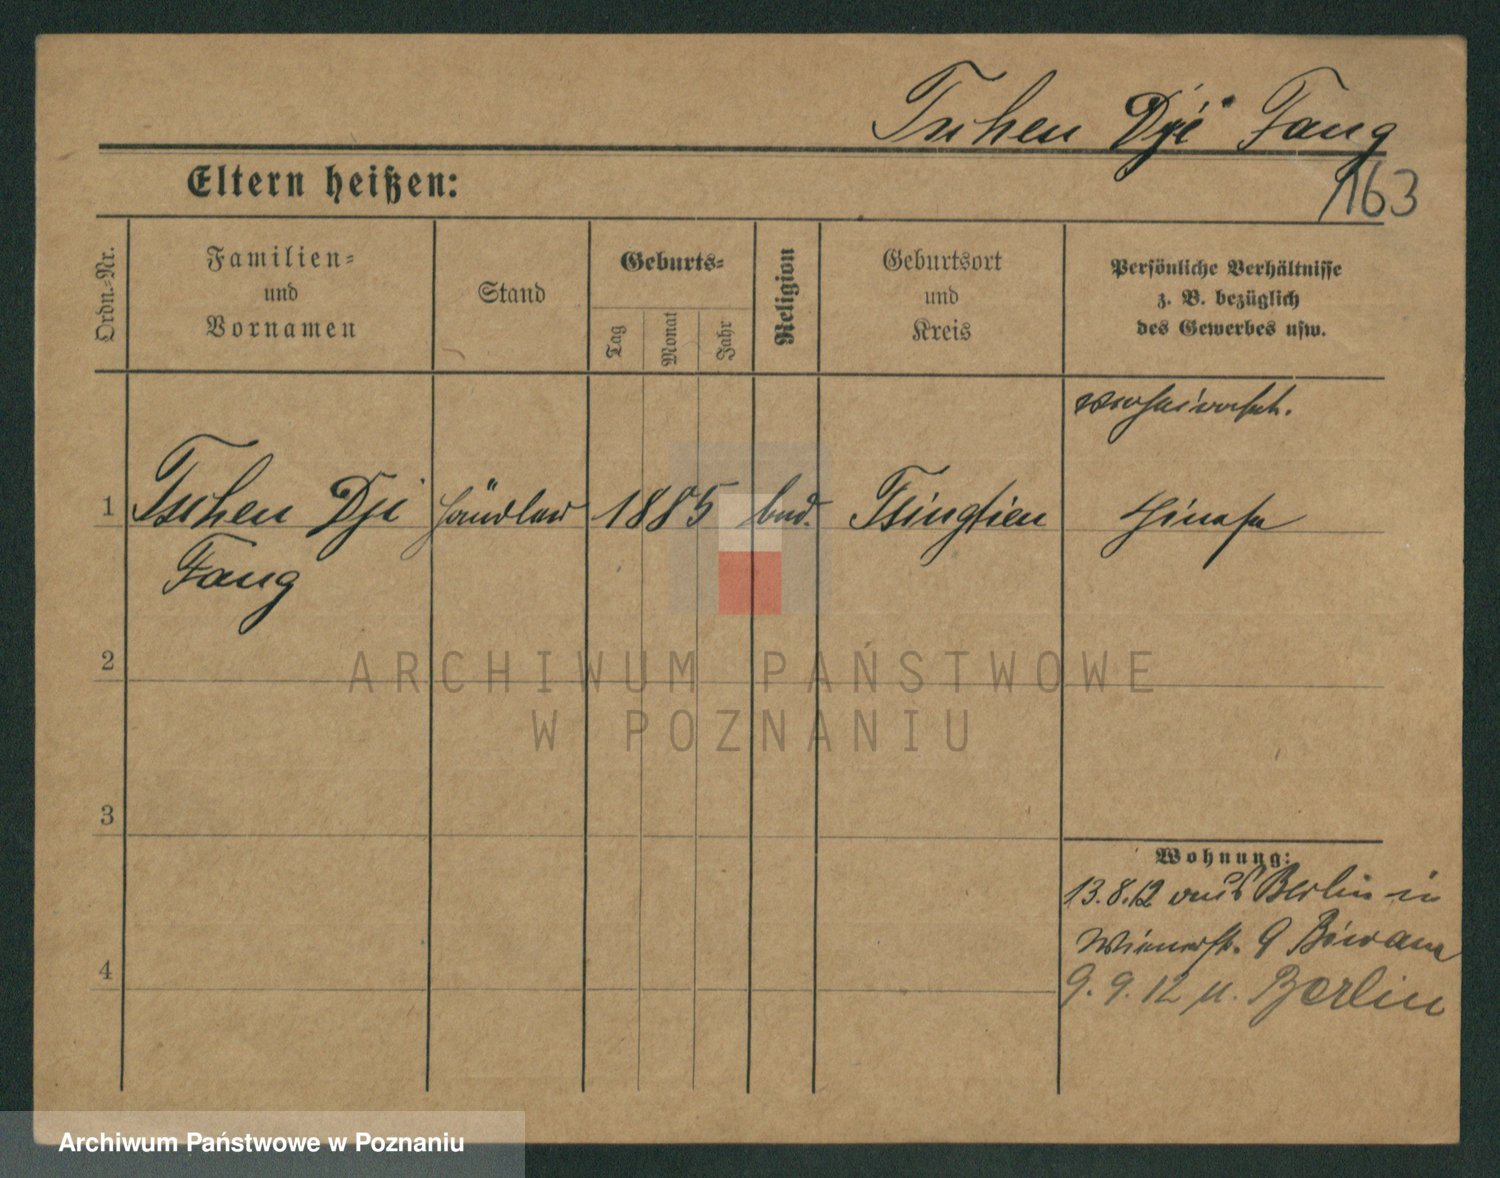 Tschen Dji Fang
163
Eltern heißen:
Ordn.-Nr.
Familien-
und
Vornamen
Stand
Geburts-
Tag
Monat
Jahr
Religion
Geburtsort
und
Kreis
Persönliche Verhältnisse
z. B. bezüglich
des Gewerbes usw.
1
Tschen Dji
Fang
Händler
1885
bud.
Tsingtien
2
3
4
Wohnung:
13.8.12 aus Berlin in
Wienerstr. 9
9. 9. 12 n. Berlin
ARCHIWUM PAŃSTWOWE
W POZNANIU
Archiwum Państwowe w Poznaniu